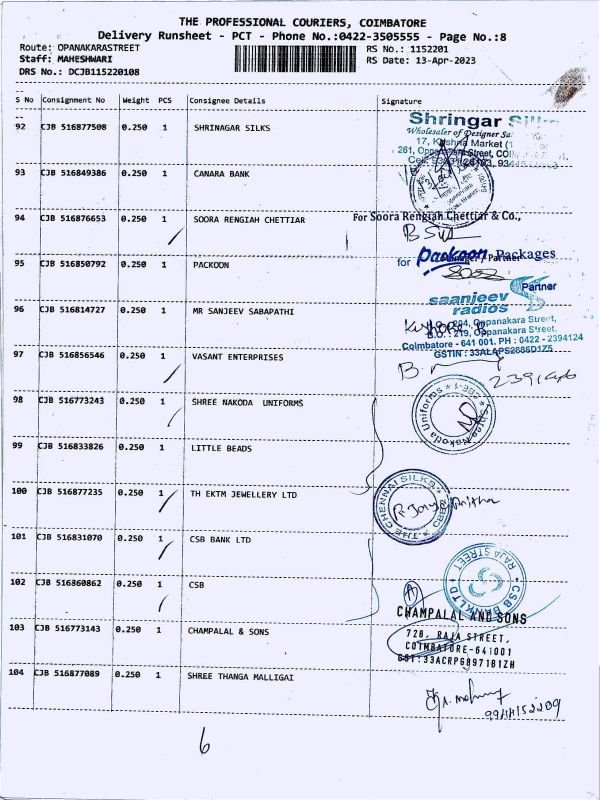 THE PROFESSIONAL COURIERS, COIMBATORE
Delivery Runsheet - PCT - Phone No.:0422-3505555 - Page No.:8
Route: OPANAKARASTREET RS No.: 1152201
Staff: MAHESHWARI RS Date: 13-Apr-2023
DRS No.: DCJB115220108
S No Consignment No Weight PCS Consignee Details Signature
92 CJB 516877508 0.250 1 SHRINAGAR SILKS
Shringar
Wholesaler of Designer
17, Krishna Market
261,
93 CJB 516849386 0.250 1 CANARA BANK
94 CJB 516876653 0.250 1 SOORA RENGIAH CHETTIAR
For Soora Rengiah Chettiar & Co.,
95 CJB 516850792 0.250 1 PACKOON
for Packoon Packages
Partner
96 CJB 516814727 0.250 1 MR SANJEEV SABAPATHI
saanjeev
radios
294, Oppanakara Street,
B.O. : 219, Oppanakara Street,
Coimbatore - 641 001. PH : 0422 - 2394124
GSTIN : 33ALAPS2886D1Z5
97 CJB 516856546 0.250 1 VASANT ENTERPRISES
98 CJB 516773243 0.250 1 SHREE NAKODA UNIFORMS
Shree Nakoda Uniforms
99 CJB 516833826 0.250 1 LITTLE BEADS
100 CJB 516877235 0.250 1 TH EKTM JEWELLERY LTD
THE CHENNAI SILKS
101 CJB 516831070 0.250 1 CSB BANK LTD
102 CJB 516860862 0.250 1 CSB
CSB BANK LTD
RAJA STREET
103 CJB 516773143 0.250 1 CHAMPALAL & SONS
CHAMPALAL AND SONS
728, RAJA STREET,
COIMBATORE-641001
GST:33ACRPG8971B1ZH
104 CJB 516877089 0.250 1 SHREE THANGA MALLIGAI
6